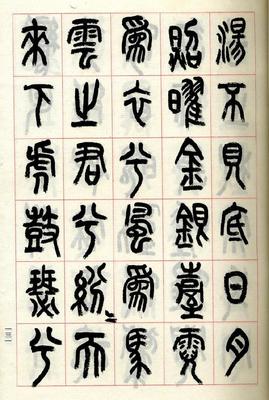 湯不見底日月
昭曜金銀臺霓
爲衣兮風爲馬
雲之君兮紛〻而
來下虎鼓瑟兮